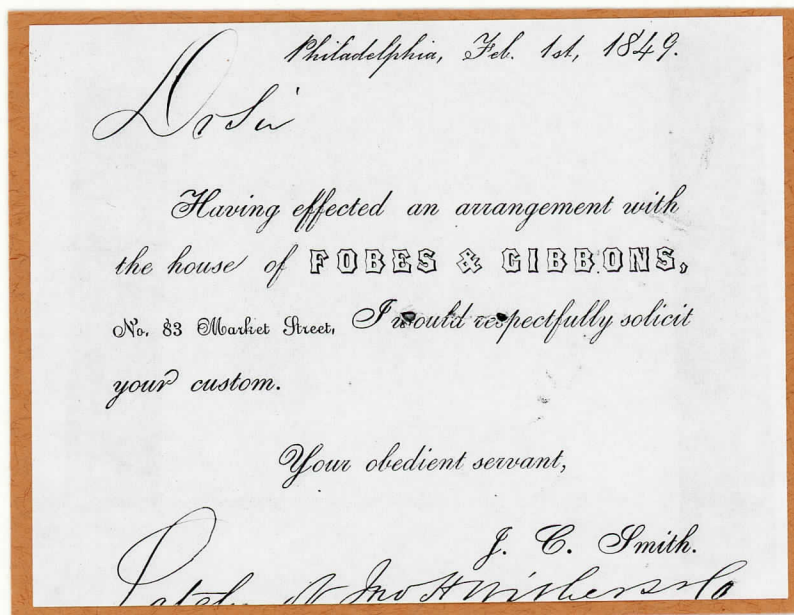 Philadelphia, Feb. 1st, 1849.
Dr Sir
Having effected an arrangement with
the house of FOBES & GIBBONS,
No. 83 Market Street, I would respectfully solicit
your custom.
Your obedient servant,
J. C. Smith.
Jno H Withers & Co